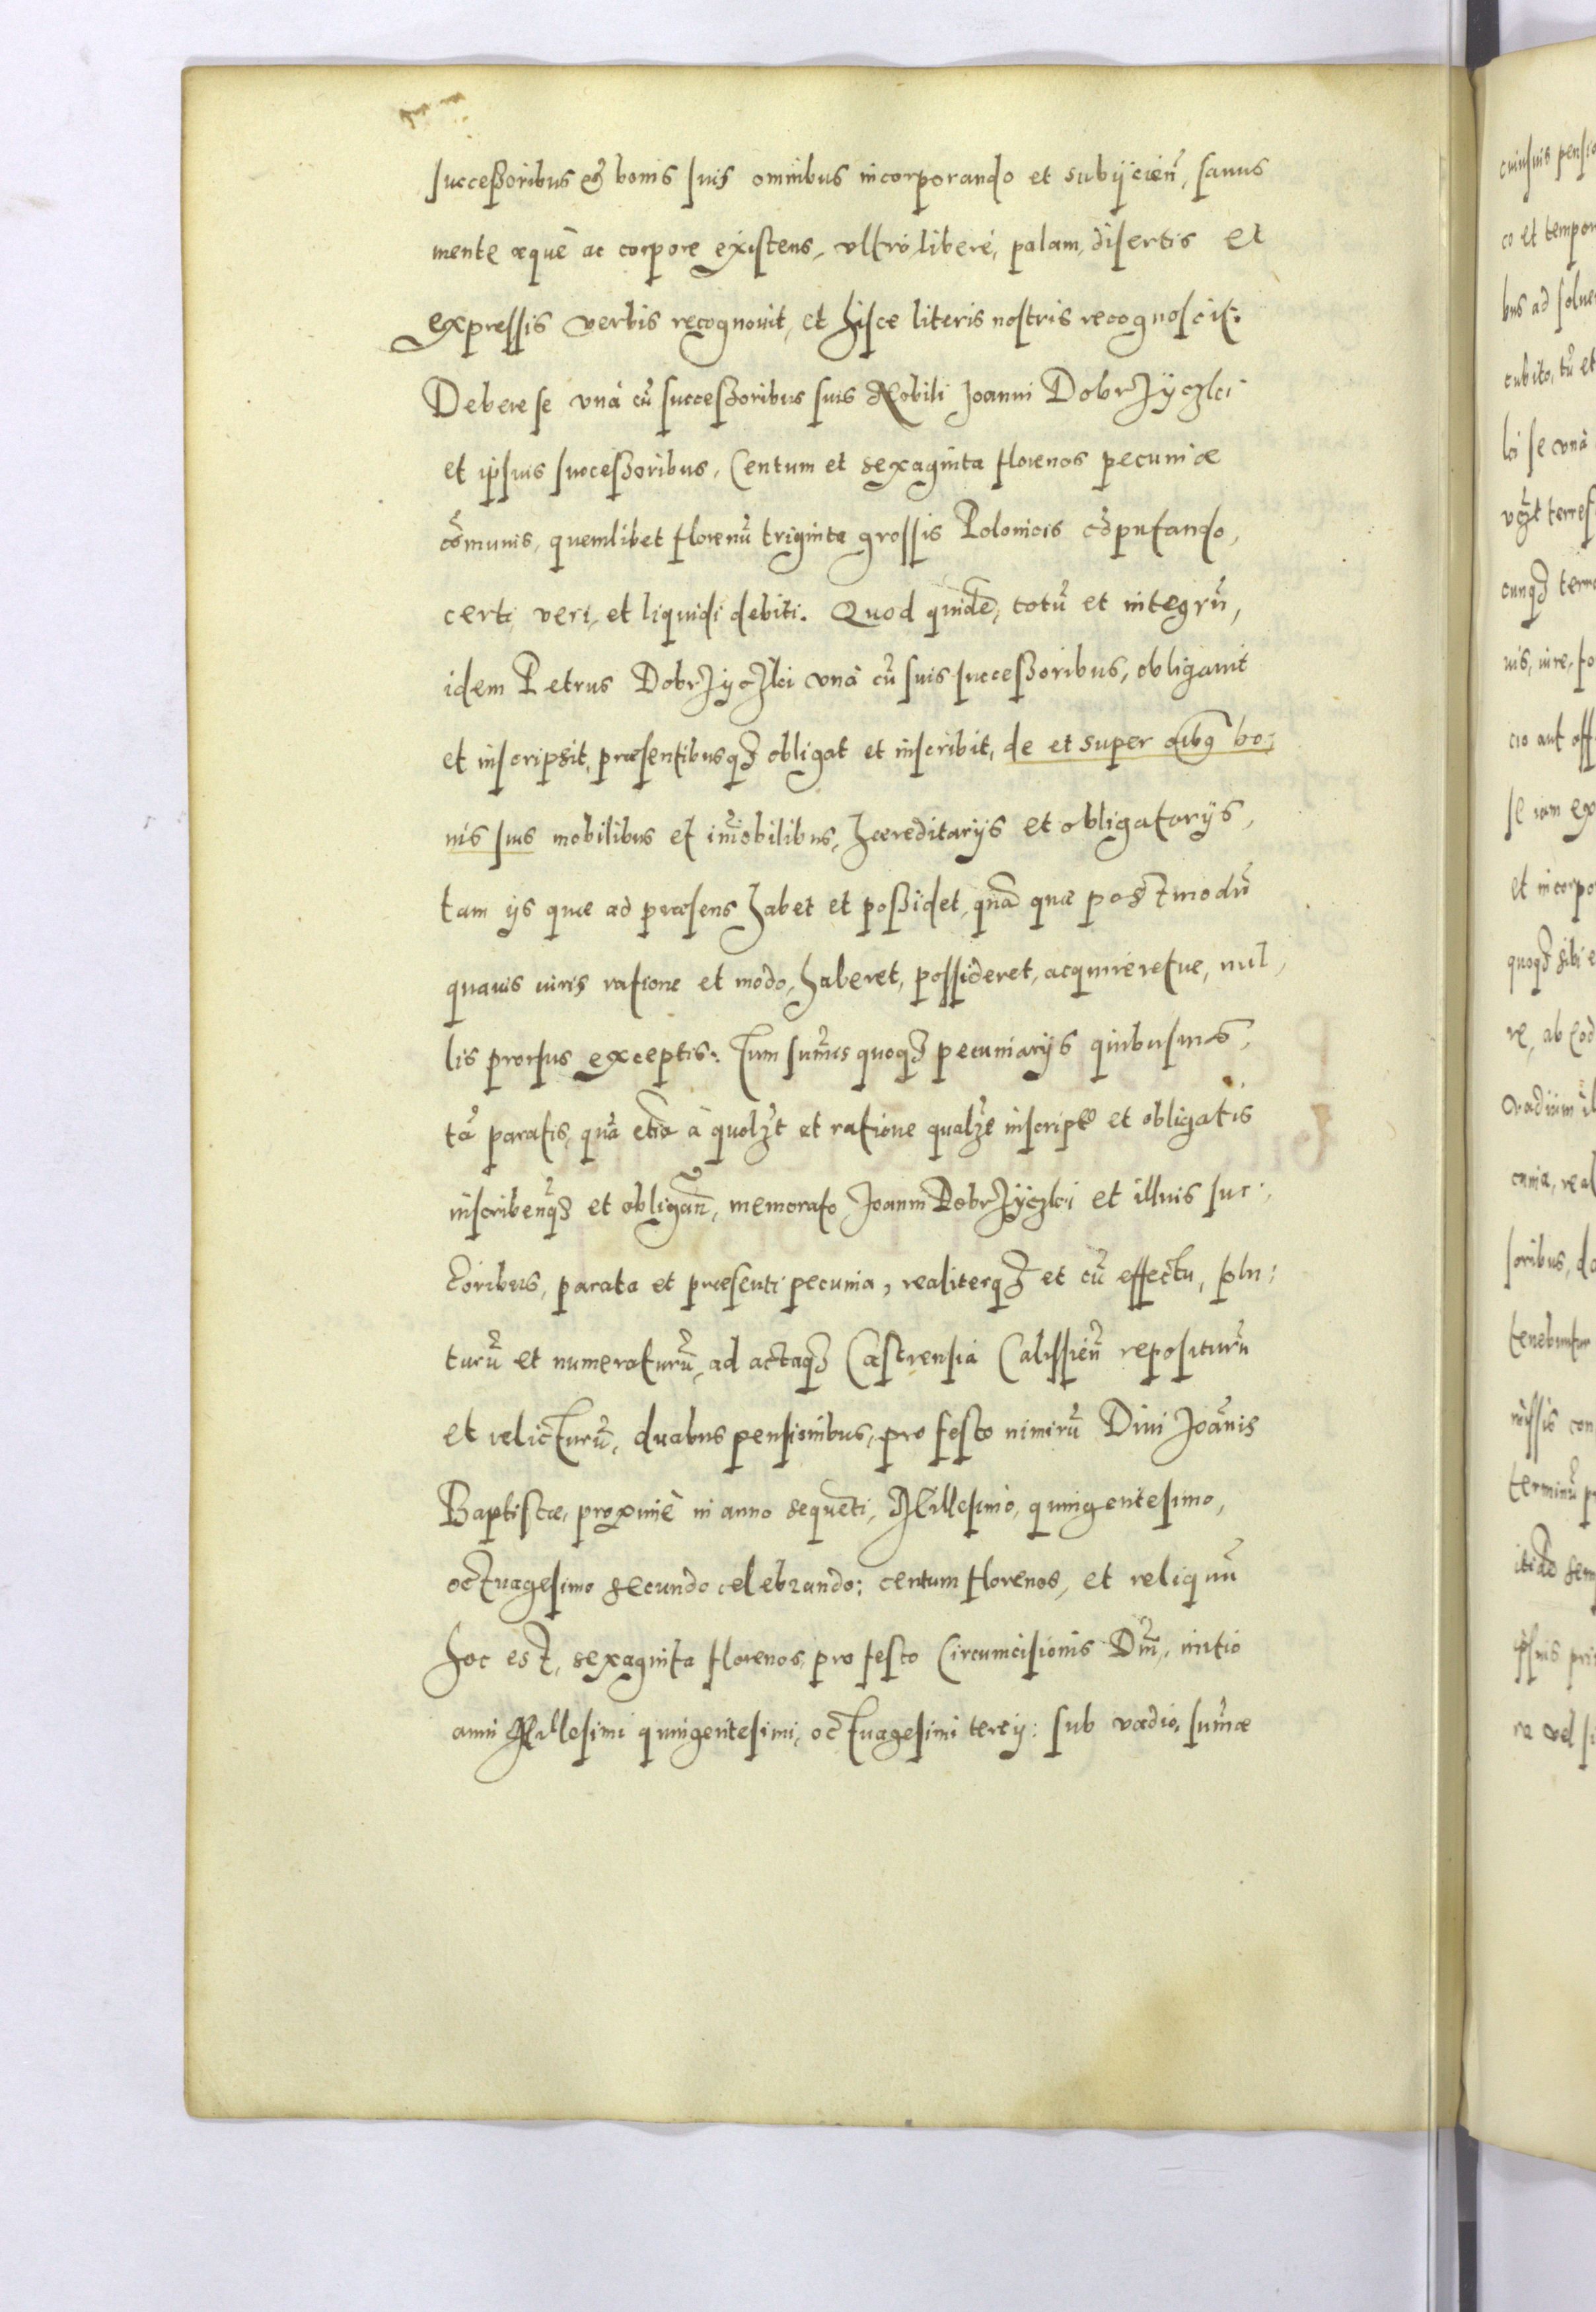 successoribus et bonis suis omnibus incorporando et subijcień, sanus
mente æquè ac corpore existens, vltrò, liberè, palam, disertis et
expressis verbis recognouit, et hisce literis nostris recognoscit:
Debere se vnà cũ successoribus suis Nobili Joanni Dobrzyczki
et ipsius successoribus, Centum et sexaginta florenos pecuniæ
cõmunis, quemlibet florenũ triginta grossis Polonicis cõputando,
certi, veri, et liquidi debiti. Quod quidẽ, totũ et integrũ,
idem Petrus Dobrzyczki vnà cũ suis successoribus, obligauit
et inscripsit, præsentibusq3 obligat et inscribit, de et super oĩbq bo-
nis suis mobilibus et im̃obilibus, hæreditarijs et obligatorijs,
tam ijs quæ ad præsens habet et possidet, quã quæ postmodũ
quauis iuris ratione et modo, haberet, possideret, acquireretue, nul-
lis prorsus exceptis: Tum sum̃is quoq3 pecuniarijs quibusuis,
tã paratis, quã etiã à quolz̃t et ratione qualz̃t inscript̃ et obligatis
inscribenq̃3 et obligañ, memorato Joanni Dobrzyczki et illius suc-
c̃oribus, parata et præsenti pecunia, realiterq3 et cũ effectu, solu-
turũ et numeraturũ, ad actaq3 Castrensia Calissień repositurũ
et relicturũ, duabus pensionibus, pro festo nimirũ Diui Joãnis
Baptistæ, proximè in anno sequẽti, Millesimo, quingentesimo,
octuagesimo secundo celebrando: centum florenos, et reliquũ
hoc est, sexaginta florenos, pro festo Circumcisionis Dñi, initio
anni Millesimi quingentesimi, octuagesimi tercij: sub vadio, sum̃æ
cuiusuis pensio
co et tempor
bus ad solue
cubito, tũ et
lci se vnà
vz̃t terres
cunq3 terre
uis, iure, fo
cio aut off
se iam ex
et incorpo
quoq3 sibi e
re, ab eod
vadium il
cunia, real
soribus, da
tenebuntur
missis con
terminũ pr
itidẽ sem
ipsius pri
re vel si